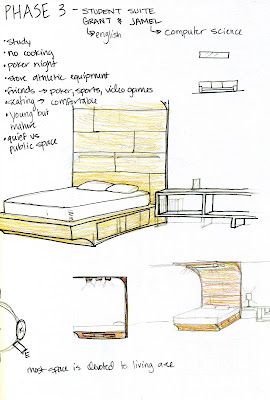 PHASE 3 - STUDENT SUITE
GRANT & JAMEL
english
computer science
• study
• no cooking
• poker night
• store athletic equipment
• friends → poker, sports, video games
• seating → comfortable
• young but
mature
• quiet vs
public space
E
most space is devoted to living area